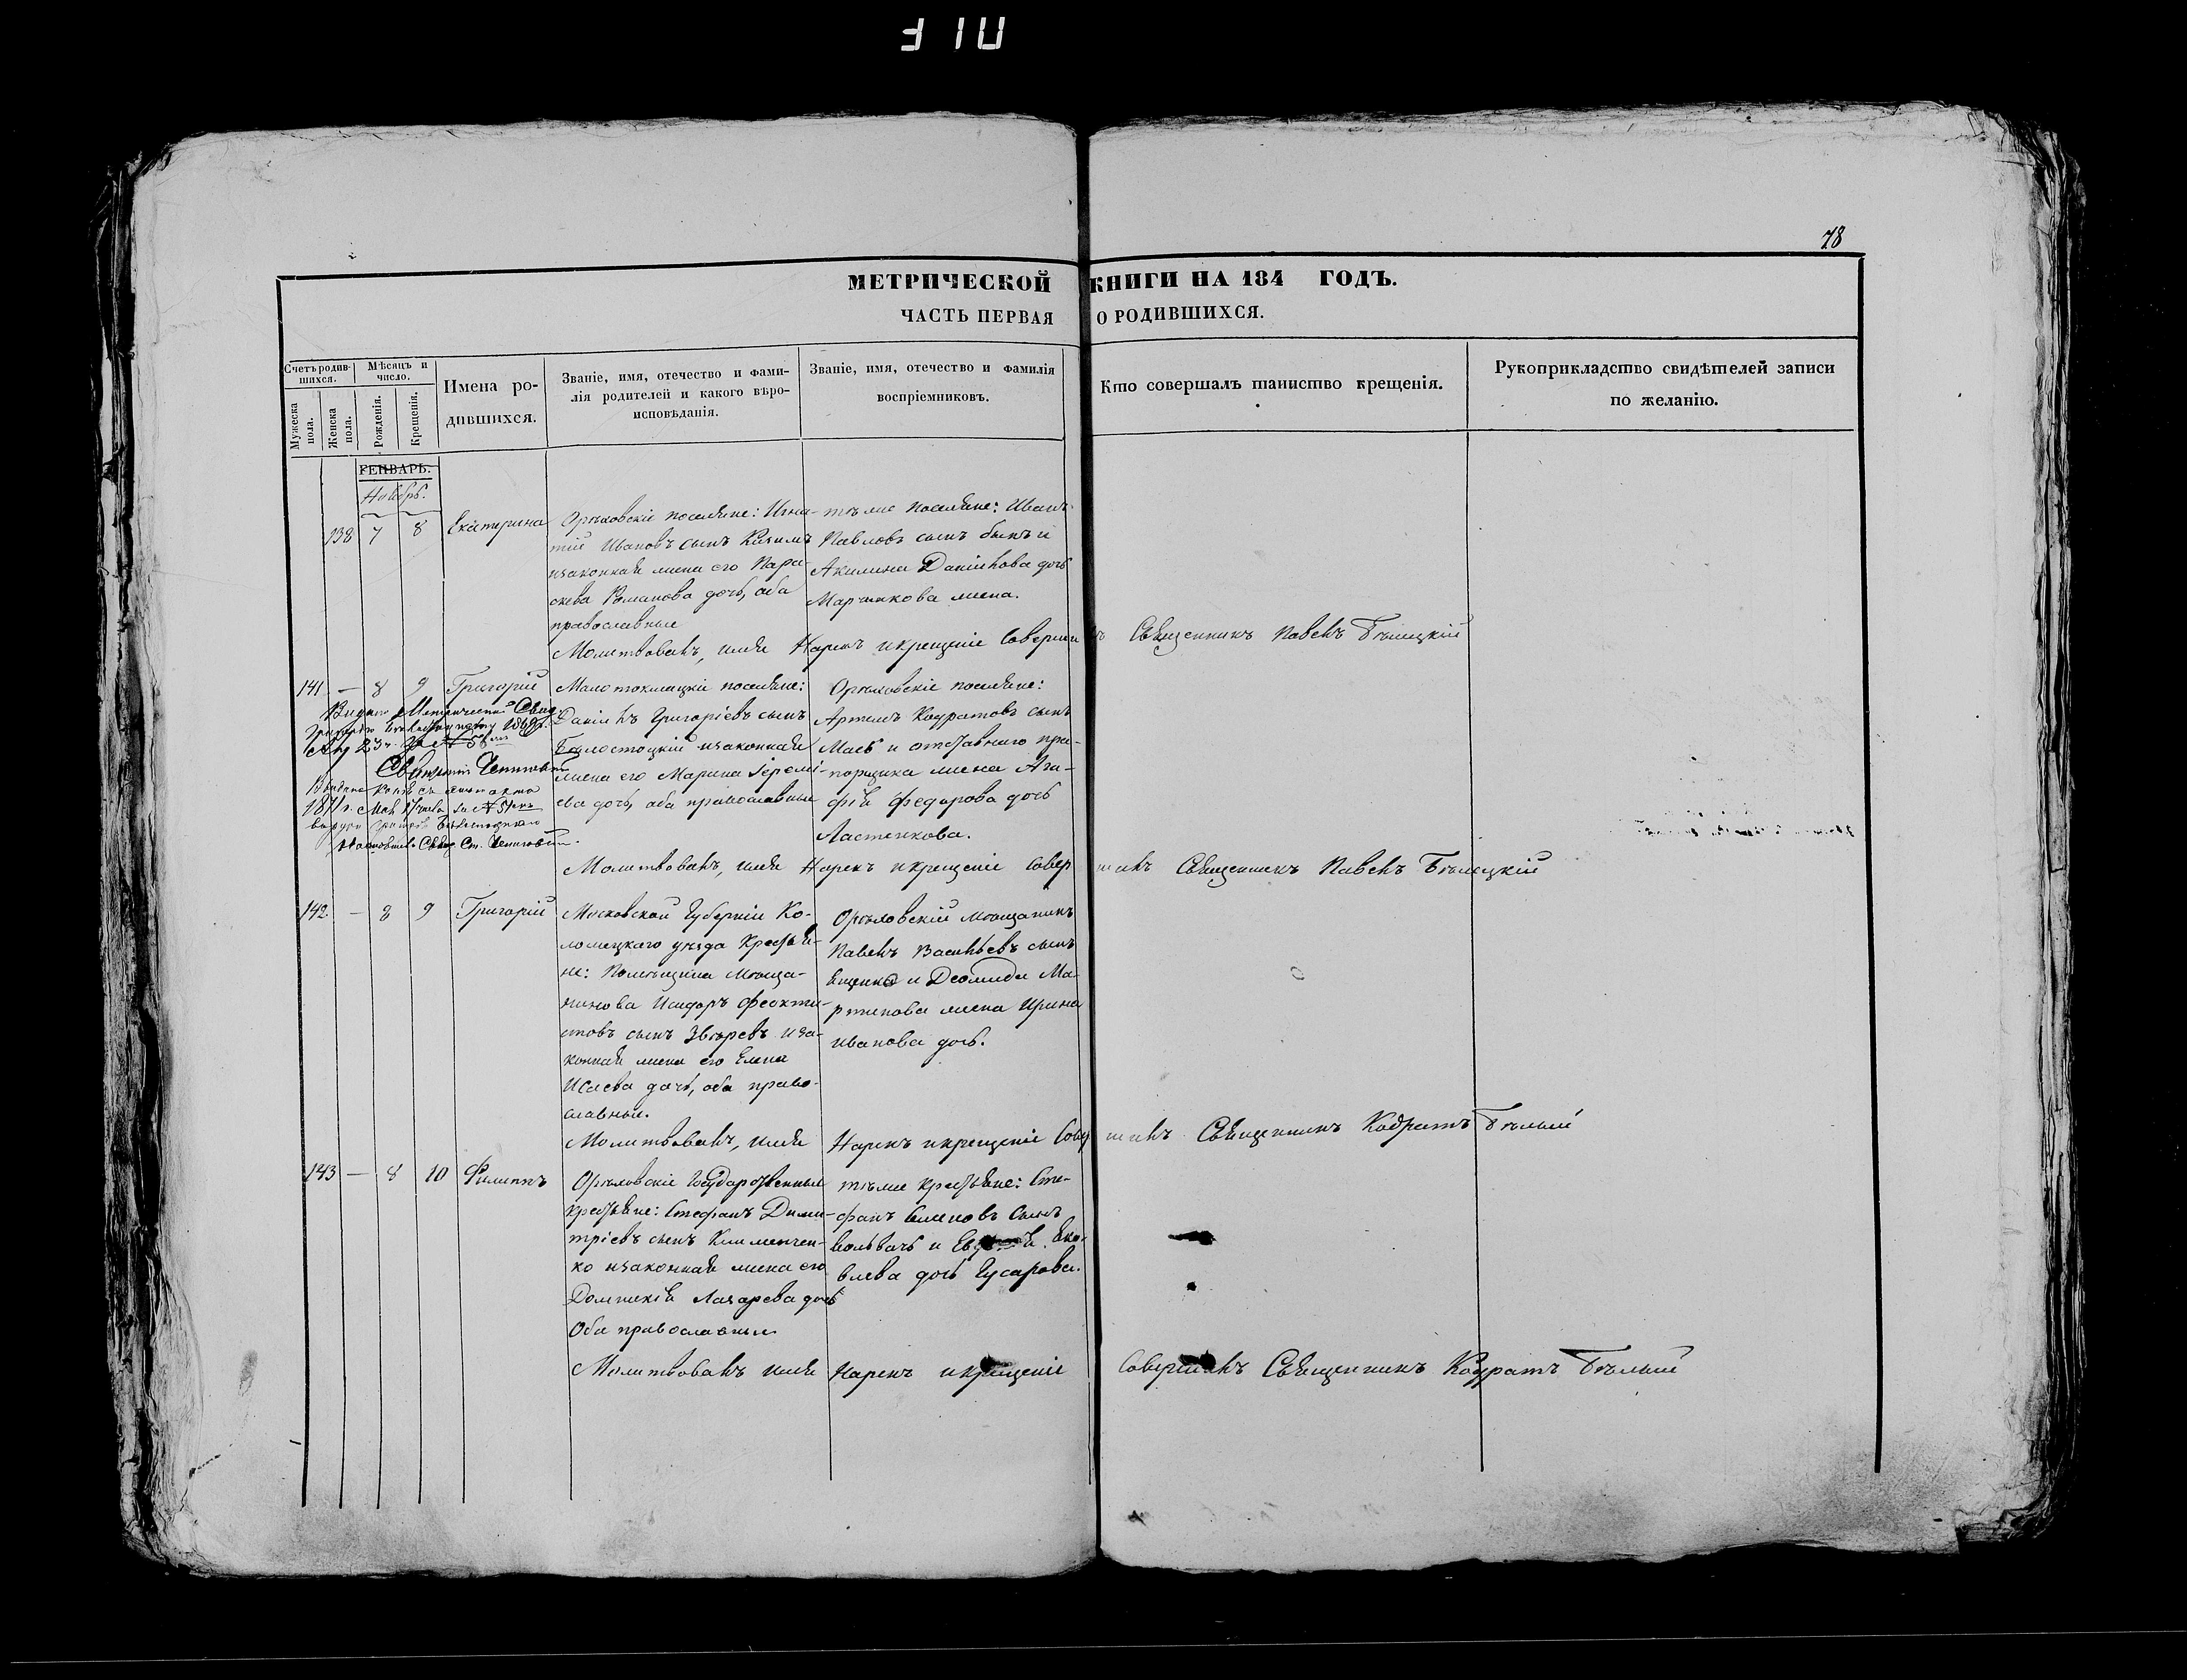 78
МЕТРИЧЕСКОЙ КНИГИ НА 184 ГОДЪ.
ЧАСТЬ ПЕРВАЯ О РОДИВШИХСЯ.
Счетъ родив-
шихся.
Мужеска пола.
Женска пола.
Мѣсяцъ и
число.
Рожденія.
Крещенія.
Имена ро-
дившихся.
Званіе, имя, отечество и фами-
лія родителей и какого вѣро-
исповѣданія.
Званіе, имя, отечество и фамилія
воспріемниковъ.
Кто совершалъ таинство крещенія.
Рукоприкладство свидѣтелей записи
по желанію.
ГЕНВАРЬ.
Ноябрь.
138 7 8 Екатерина
Орѣховскіе поселяне: Игна-
тій Ивановъ сынъ
изаконная жена его Пара-
скева Романова дочь, оба
православные
тѣже поселяне: Иванъ
Павловъ сынъ Быкъ и
Акилина Даніилова дочь
жена.
Молитвовалъ, имя Нарекъ икрещеніе Совершилъ Священникъ Павелъ Бѣлецкій
141 — 8 9 Григорій
Малотокмацкіе поселяне:
Даніилъ Григоріевъ сынъ
Бѣлостоцкій изаконная
жена его Марина Іеремі-
ева дочь, оба православные
Орѣховскіе поселяне:
Артемъ Кодратовъ сынъ
Маь и отставного пра-
порщика жена Ага-
фія Федорова дочь
Ластенкова.
Молитвовалъ, имя Нарекъ икрещеніе Совершалъ Священникъ Павелъ Бѣлецкій
142 — 8 9 Григорій
Московской Губерніи Ко-
ломецкаго уѣзда Крестья-
не: Помѣщика Мѣща-
нинова Исидоръ Феокти-
стовъ сынъ Звѣревъ иза-
конная жена его Елена
Исаева дочь, оба право-
славные.
Орѣховскій мѣщанинъ
Павелъ Васильевъ сынъ
Ященко и Деомида Ма-
ртинова жена Ирина
Иванова дочь.
Молитвовалъ, имя Нарекъ икрещеніе Совершалъ Священникъ Кодратъ Бѣлый
143 — 8 10 Филиппъ
Орѣховскіе Государственные
крестьяне: Стефанъ Дими-
тріевъ сынъ Клименчен-
ко изаконная жена его
Домникія Лазарева дочь
Оба православные
тѣже крестьяне: Сте-
фанъ Семеновъ Сынъ
и Яко-
влева дочь Гусарова.
Молитвовалъ имя Нарекъ икрещеніе Совершалъ Священникъ Кодратъ Бѣлый